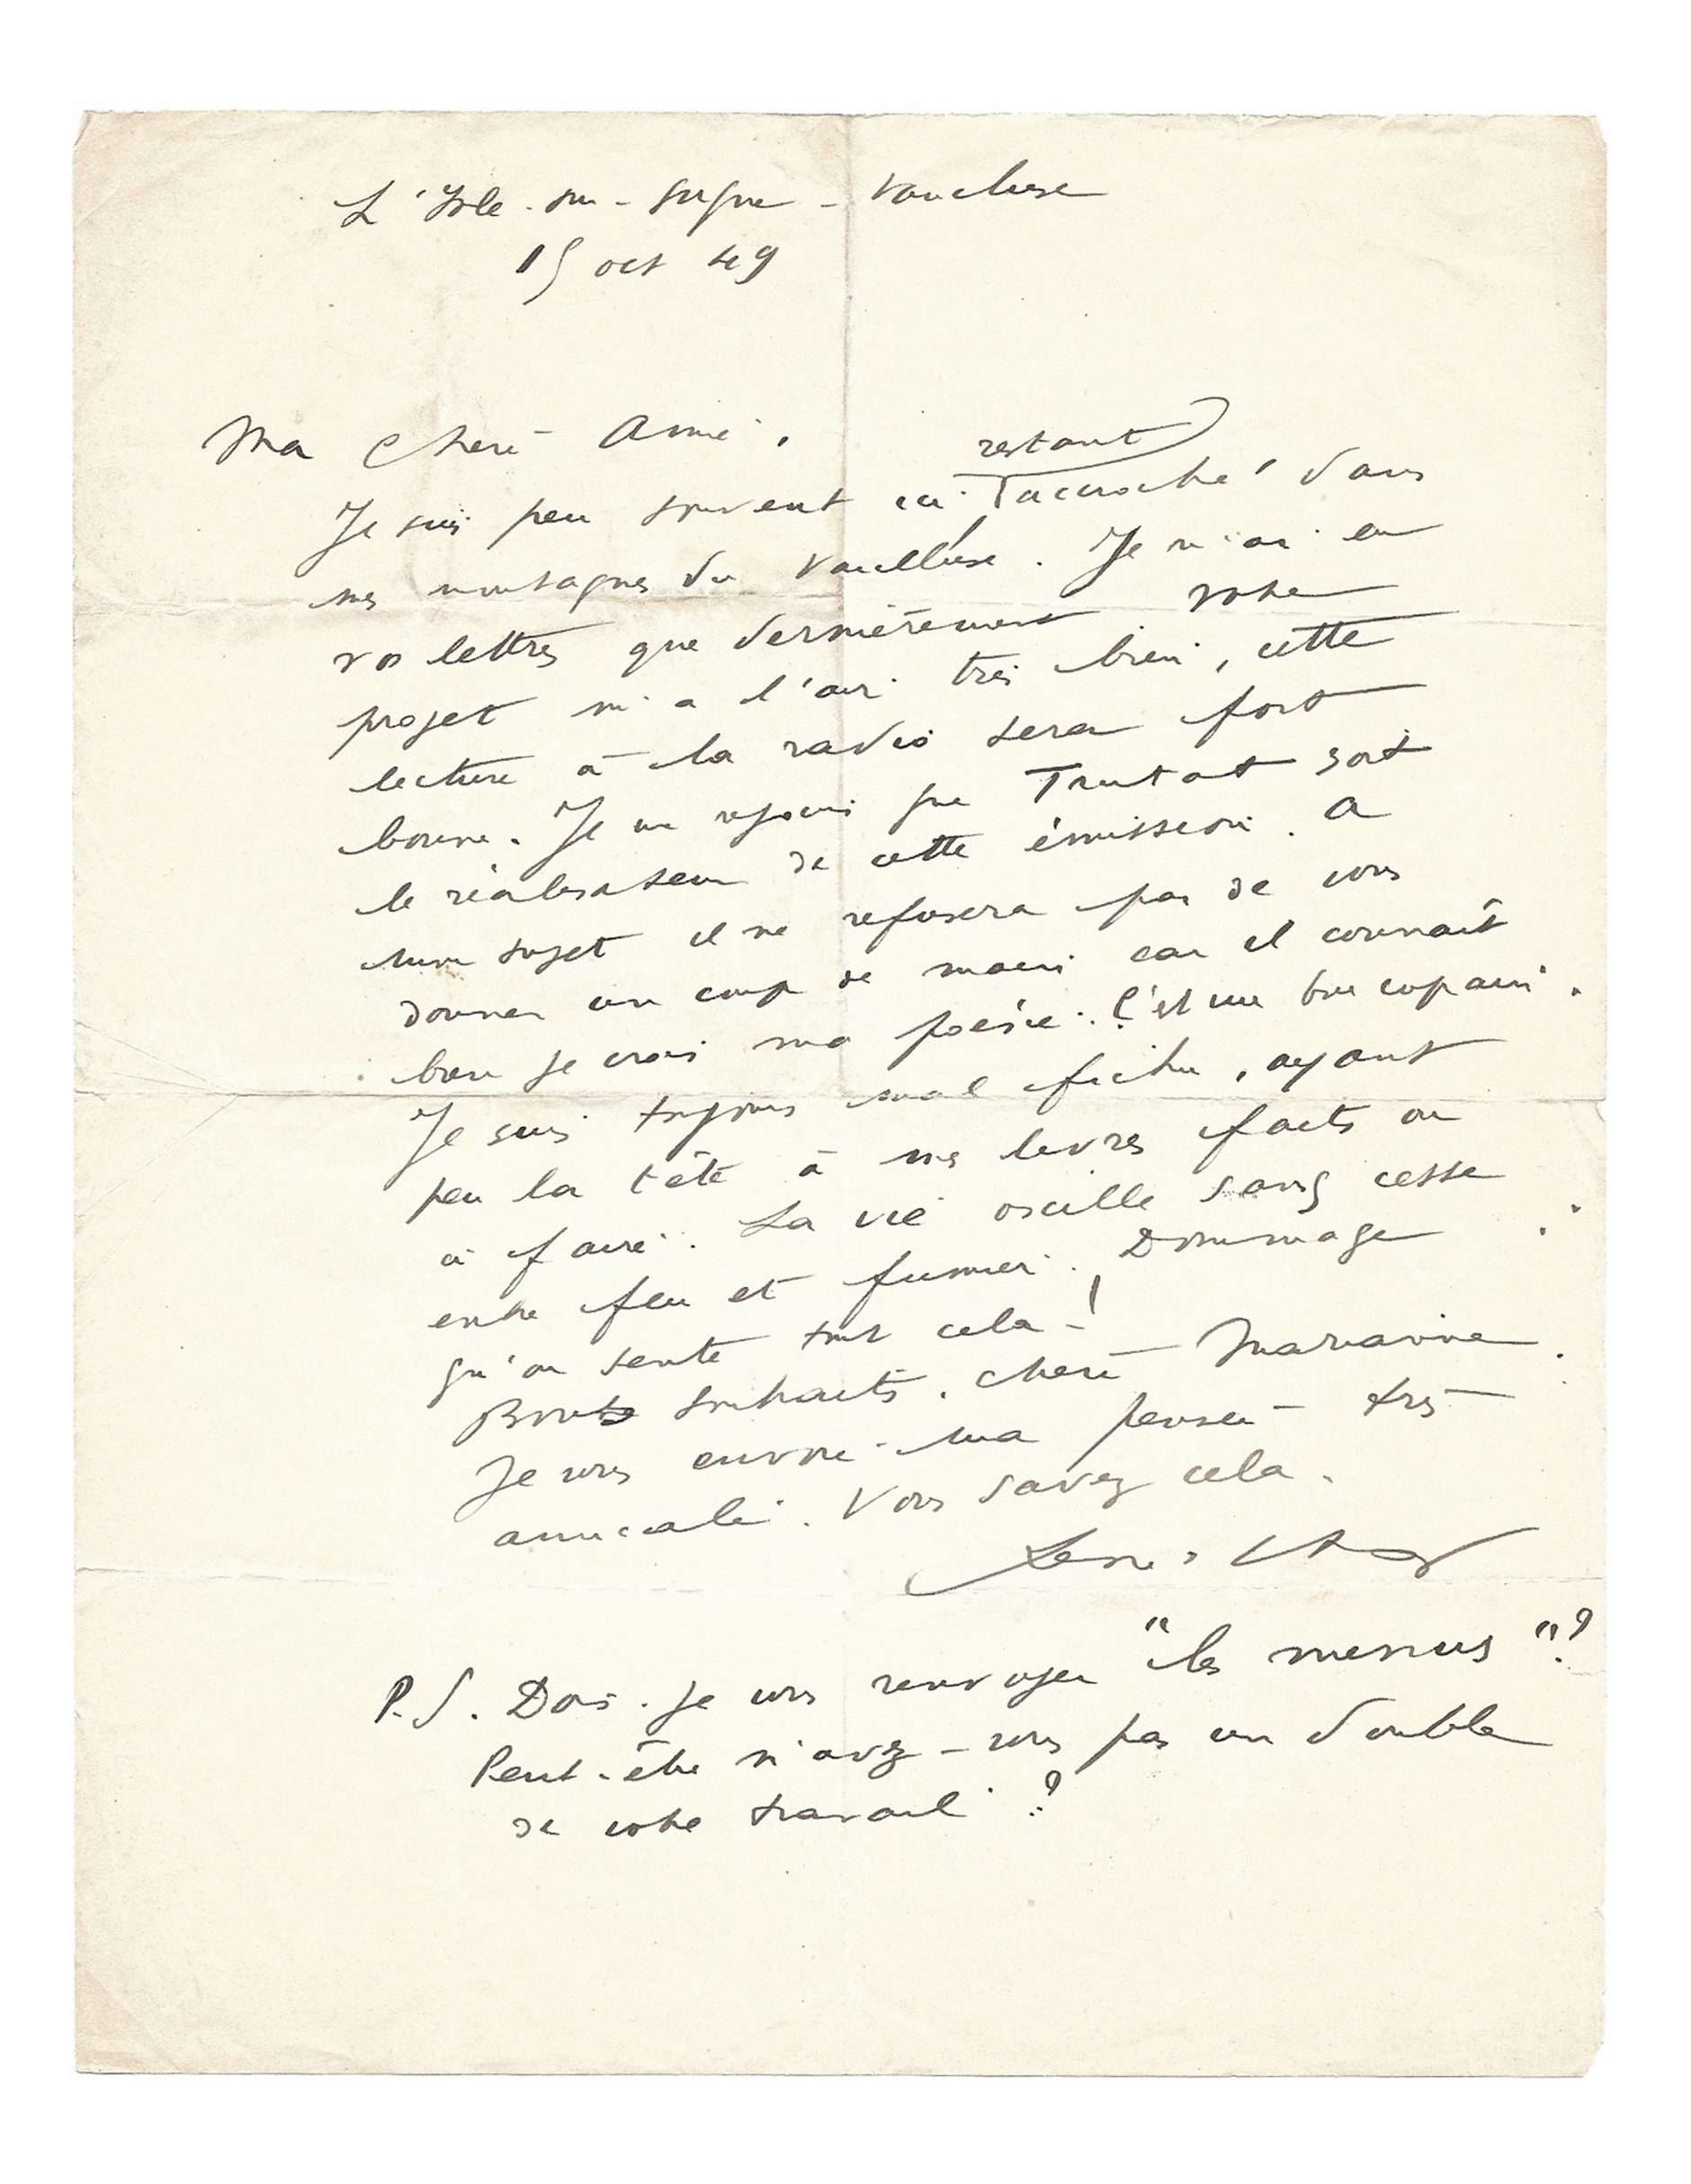 L'Isle-sur-Sorgue - Vaucluse
15 oct 49
Ma Chère Amie,
restant
Je suis peu souvent ici accroché dans
mes montagnes du Vaucluse. Je n'ai eu
vos lettres que dernièrement. Votre
projet m'a l'air très bien, cette
lecture à la radio sera fort
bonne. Je me réjouis que Trutat soit
le réalisateur de cette émission. A
mon sujet il ne refusera pas de vous
donner un coup de main car il connaît
bien je crois ma poésie. C'est un bon copain.
Je suis toujours mal fichu, ayant
peu la tête à mes livres faits ou
à faire. La vie oscille sans cesse
entre feu et fumier. Dommage
qu'on sente tout cela !
Bons souhaits, chère Marianne.
Je vous envoie ma pensée très
amicale. Vous savez cela.
René Char
P.S. Dois-je vous renvoyer "les menus" ?
Peut-être n'avez-vous pas un double
de votre travail ?